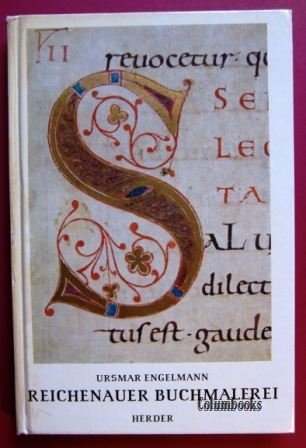 VII
revocetur· qu
S
SE
LEC
TA
SALU
dilect
tus est · gaude
URSMAR ENGELMANN
REICHENAUER BUCHMALEREI
Columbooks
HERDER